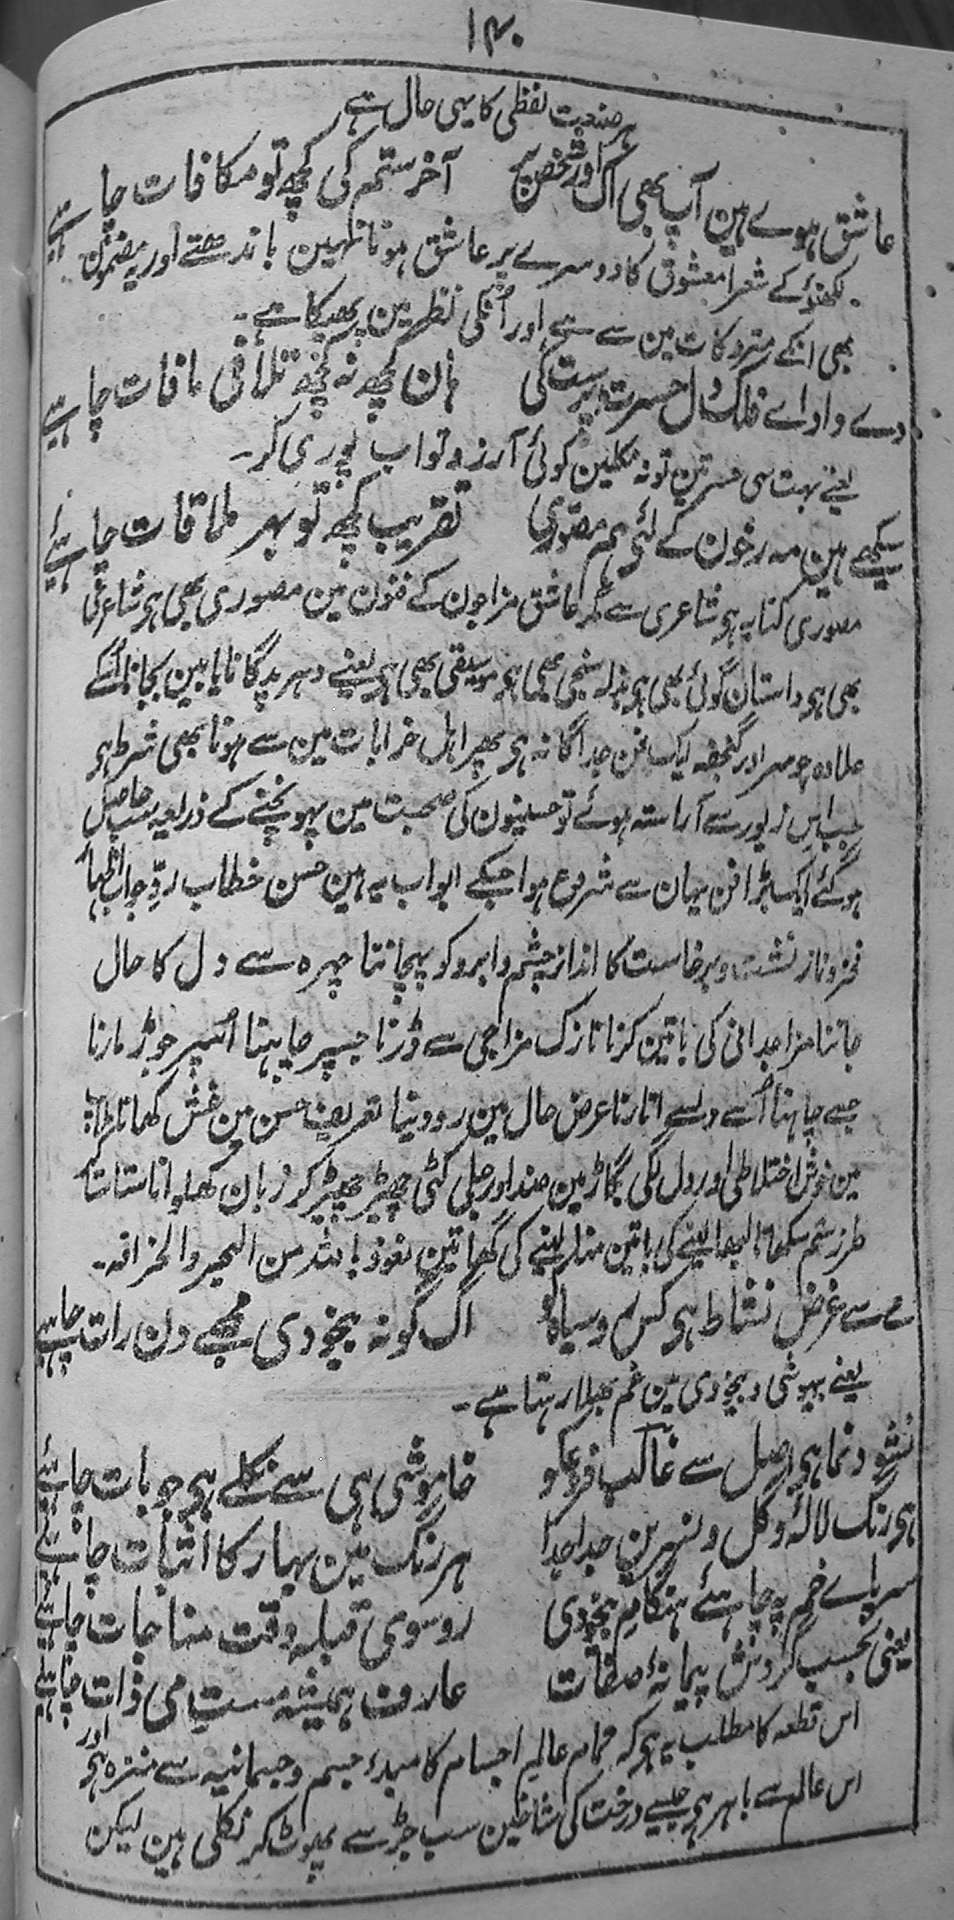 ۱۴۰
ہر صنعت لفظی کا یہی حال ہے
عاشق ہوے ہین آپ بھی اک اور شخص پر آخر ستم کی کچھ تو مکافات چاہیے
لکھنؤ کے شعرا معشوق کا دوسرے پر عاشق ہونا نہین باندھتے اور یہ مضمون
بھی انکے متروکات مین سے ہے اور اُنکی نظر مین پھیکا ہے۔
دے داد اے فلک دل حسرت پرست کی ہان کچھ نہ کچھ تلافی مافات چاہیے
یعنے بہت سی حسرتین تو نہ نکلین کوئی آرزو تو اب پوری کر۔
سیکھے ہین مہ رخون کے لئے ہم مصوری تقریب کچھ تو بہر ملاقات چاہئے
مصوری کنایہ ہو شاعری سے مگر عاشق مزاجون کے فنون مین مصوری بھی ہو شاعری
بھی ہو داستان گوئی بھی ہو بذلہ سنجی بھی ہو موسیقی بھی ہو یعنے دھرپد گانا یا بین بجانا اُنکے
علاوہ چوسر اور گنجفہ ایک فن جداگانہ ہو پھر اہل خرابات مین سے ہونا بھی شرط ہو
جب اس زیور سے آراستہ ہوئے تو حسینون کی صحبت مین پہونچنے کے ذرایعہ سب حاصل
ہوگئے ایک بڑا فن یہان سے شروع ہوا جسکے ابواب یہ ہین حسن خطاب ردِّ جواب اظہار
فخر و ناز نشست و برخاست کا انداز چشم و ابرو کو پہچاننا چہرہ سے دل کا حال
جاننا مزاجدانی کی باتین کرنا نازک مزاجی سے ڈرنا جسپر چاہنا اُسپر جوڑ مارنا
جسے چاہنا اُسے دلسے اتارنا عرض حال مین رو دینا تعریف حسن مین غش کھانا
مین خوش اختلاطی اور دل لگی بگاڑ مین ضد اور جلی کٹی چھیڑ چھیڑ کر زبان کھلوانا ستا ستا کر
طرز ستم سکھانا لبھا لینے کی باتین منا لینے کی گھاتین نعوذ باللہ من الہجر والخرافہ۔
مے سے غرض نشاط ہی کس روسیاہ کو اک گونہ بیخودی مجھے دن رات چاہیے
یعنے بیہوشی و بیخودی مین غم بھلا رہتا ہے۔
نشو و نما ہی اصل سے غالب فروع کو خاموشی ہی سے نکلے ہی جو بات چاہئے
ہی رنگ لالہ و گل و نسرین جدا جدا ہر رنگ مین بہار کا اثبات چاہئے
سر پاے خم پہ چاہئے ہنگام بیخودی رو سوی قبلہ وقت مناجات چاہئے
یعنی بحسب گردش پیمانۂ صفات عارف ہمیشہ مست می ذات چاہئے
اس قطعہ کا مطلب یہ ہو کہ تمام عالم اجسام کا مبدء جسم و جسمانیہ سے منزہ ہو اور
اس عالم سے باہر ہی جیسے درخت کی شاخین سب جڑ سے پھوٹ کر نکلی ہین لیکن